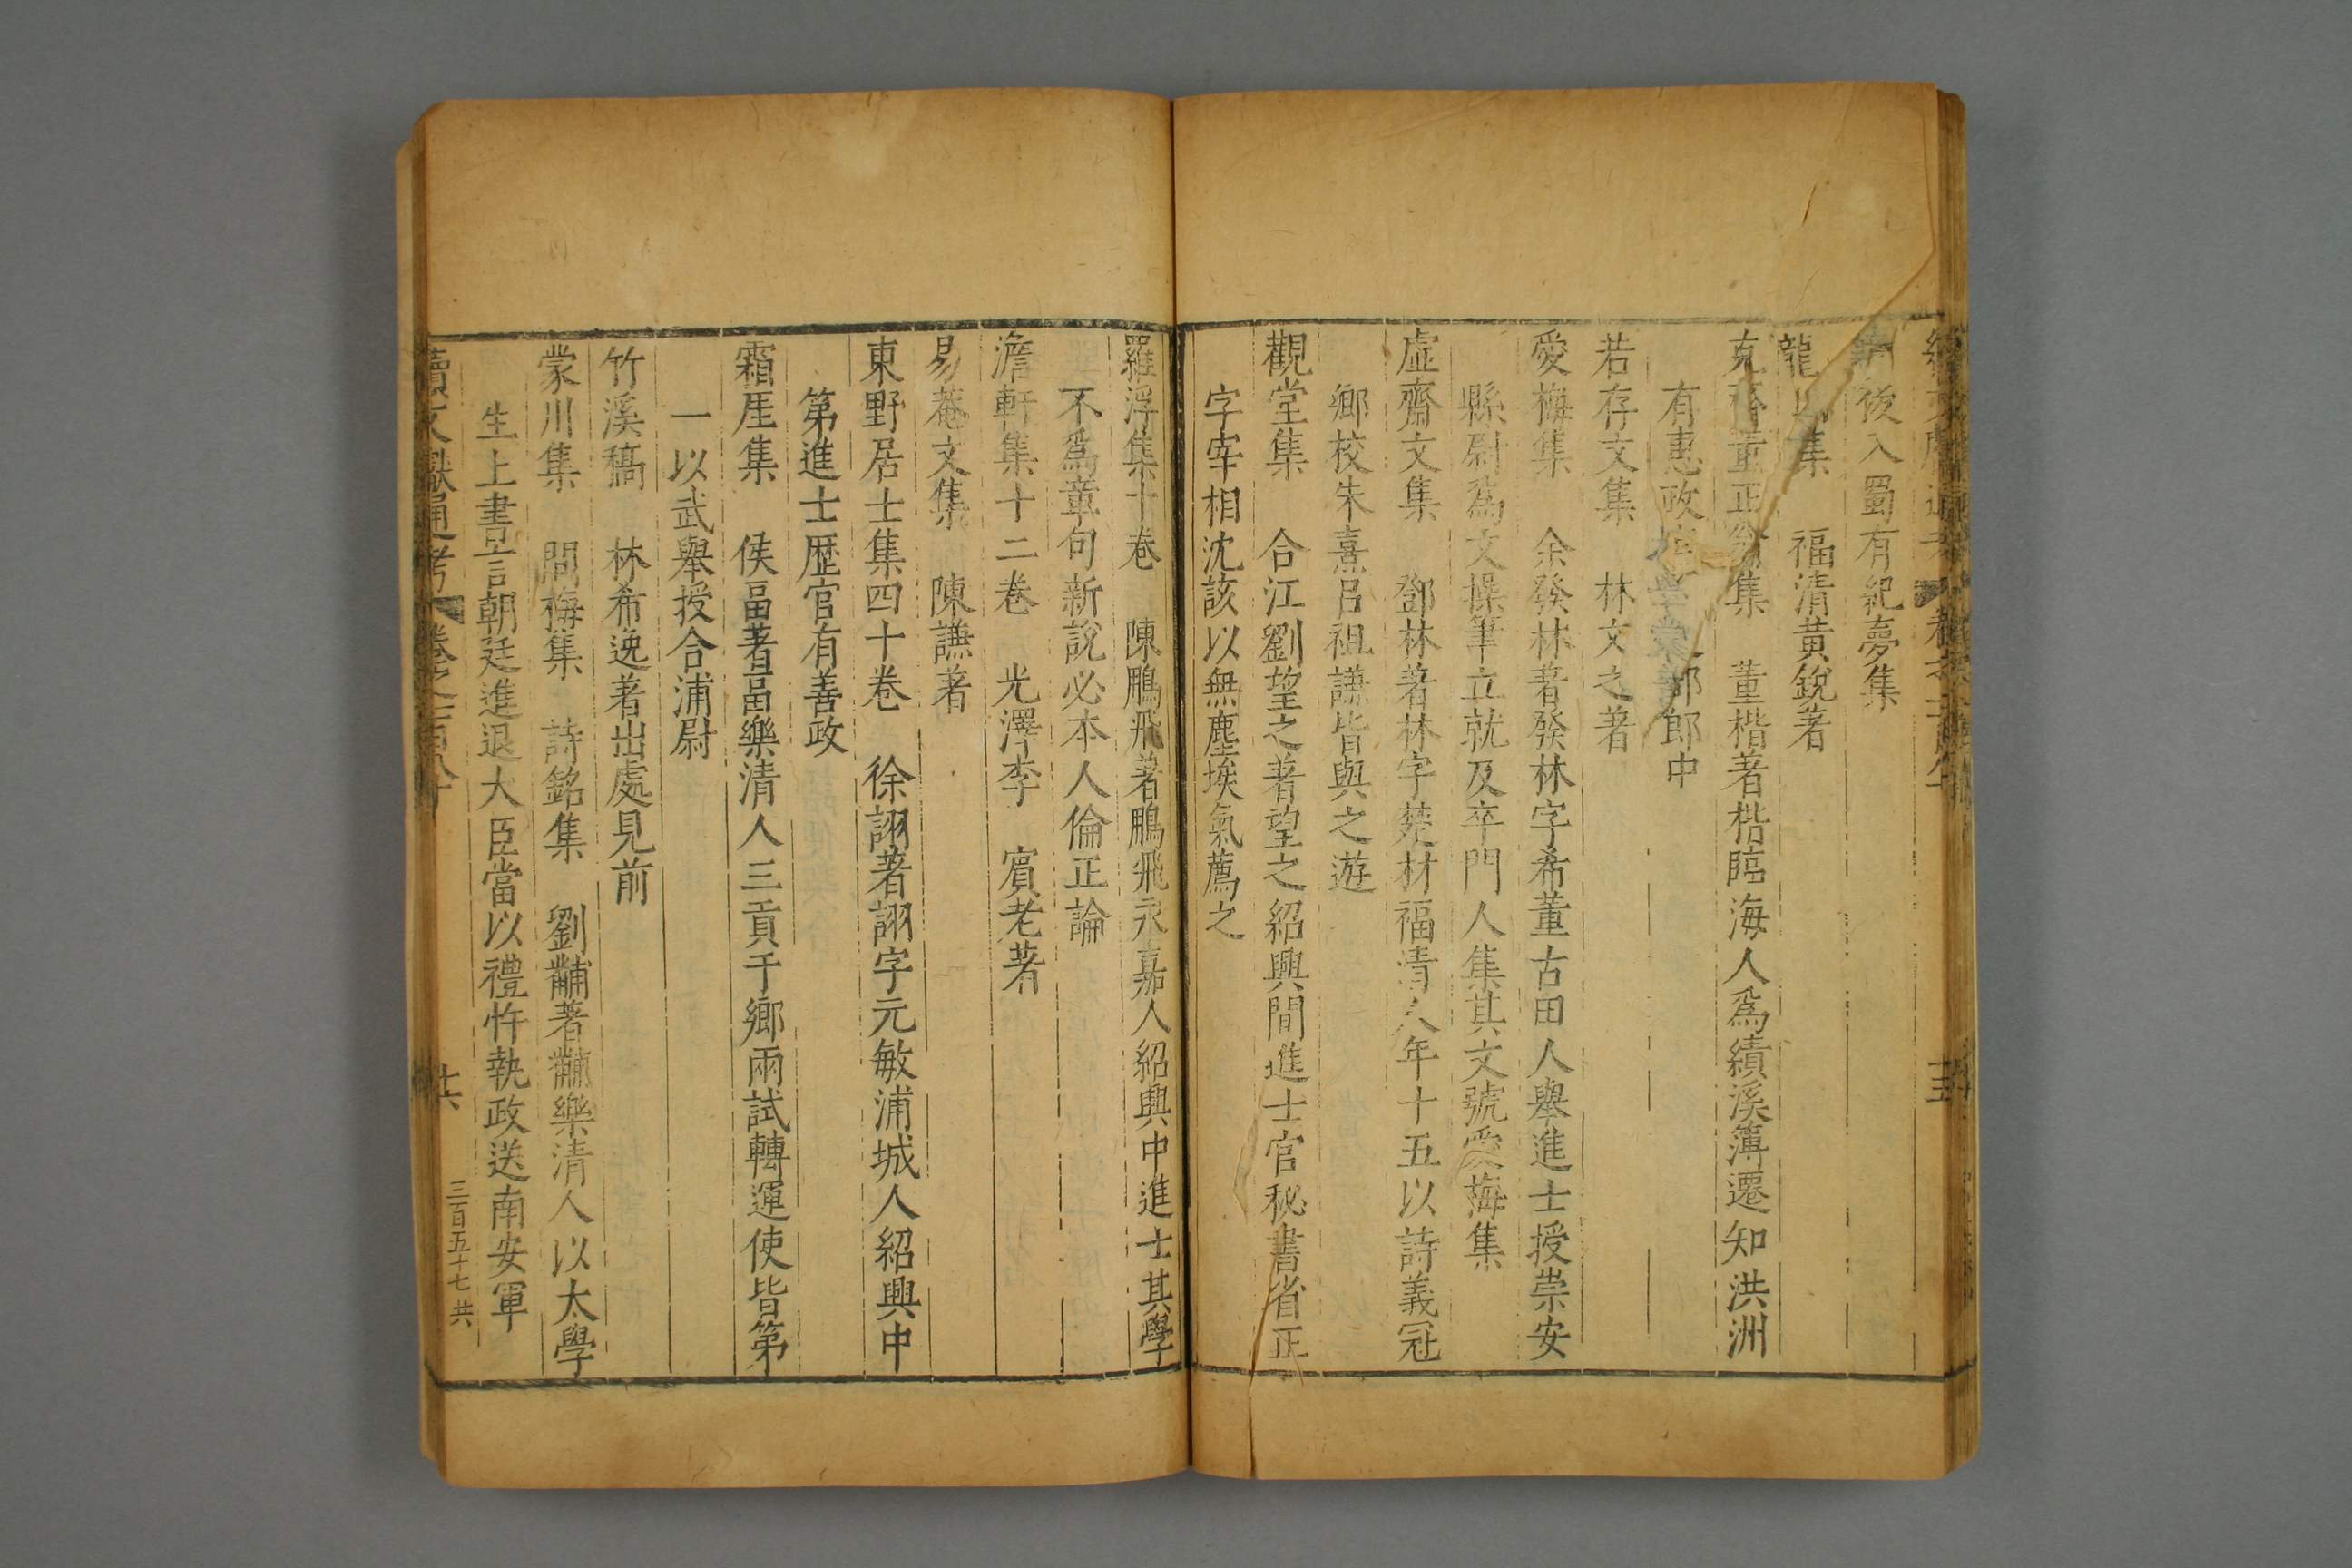 後入蜀有紀夢集
龍 集 福清黃銳著
克齋董正翁集 董楷著楷臨海人爲績溪簿遷知洪洲
有惠政 郎中
若存文集 林文之著
愛梅集 余發林著發林字希董古田人舉進士授崇安
縣尉爲文操筆立就及卒門人集其文號愛梅集
虛齋文集 鄧林著林字楚材福清人年十五以詩義冠
鄉校朱熹呂祖謙皆與之遊
觀堂集 合江劉望之著望之紹興間進士官秘書省正
字宰相沈該以無塵埃氣薦之
羅浮集十卷 陳鵬飛著鵬飛永嘉人紹興中進士其學
不爲章句新說必本人倫正論
澹軒集十二卷 光澤李 賓老著
易菴文集 陳謙著
東野居士集四十卷 徐詡著詡字元敏浦城人紹興中
第進士歷官有善政
霜厓集 侯畐著畐樂清人三貢于鄉兩試轉運使皆第
一以武舉授合浦尉
竹溪稿 林希逸著出處見前
蒙川集 問梅集 詩銘集 劉黼著黼樂清人以太學
生上書言朝廷進退大臣當以禮忤執政送南安軍
續文獻通考 卷之一百八十 十六 三百五十七 共